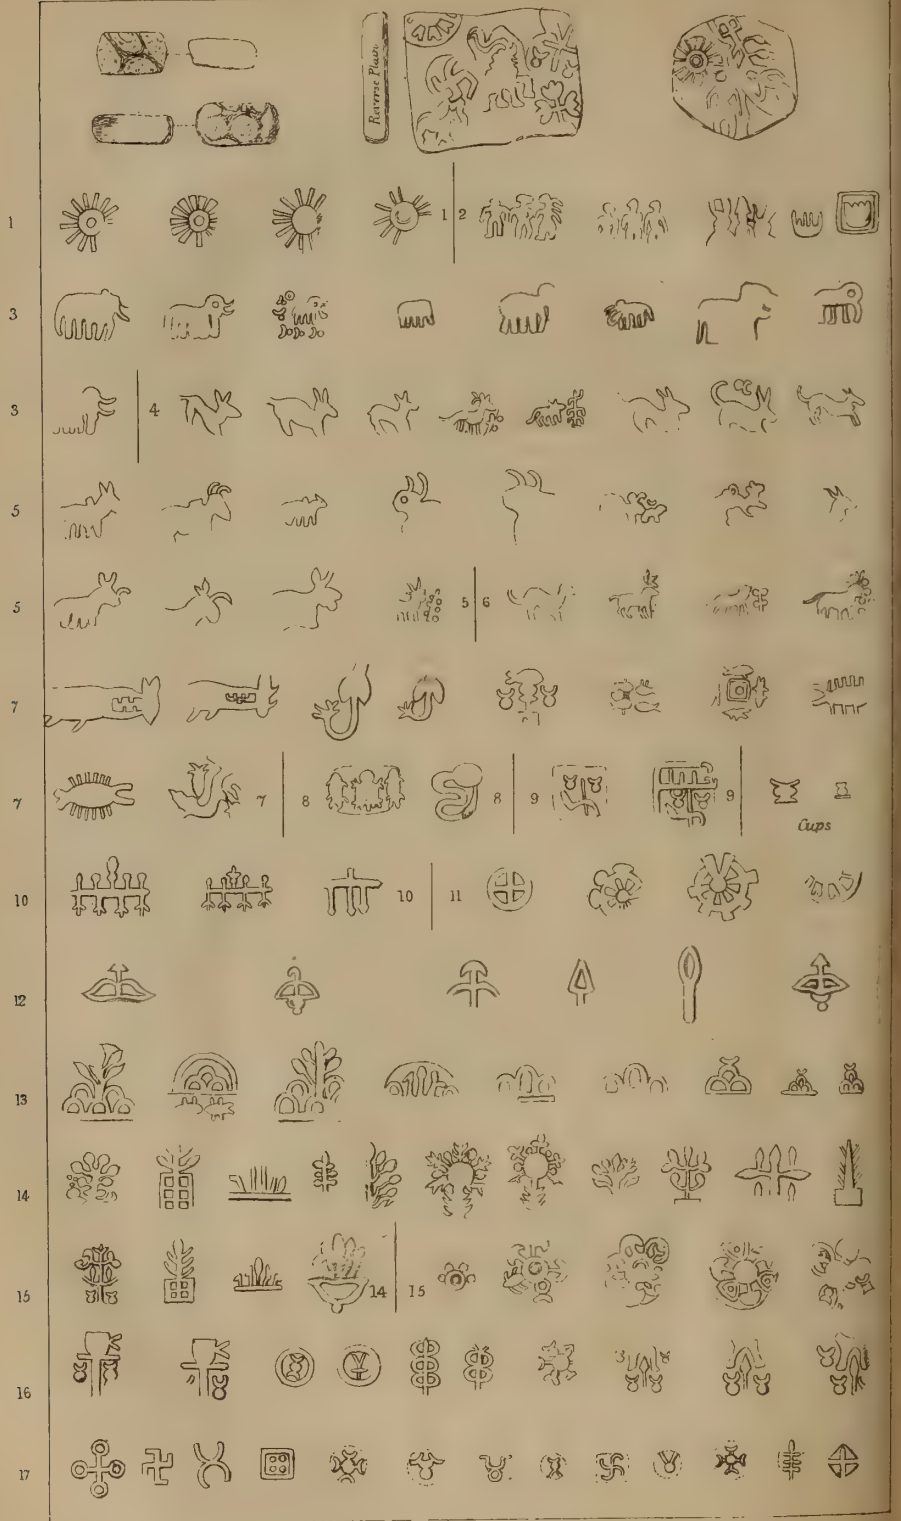 Reverse Plain
1 1 2
3
3 4
5
5 5 6
7
7 7 8 8 9 9
Cups
10 10 11
12
13
14
15 14 15
16
17